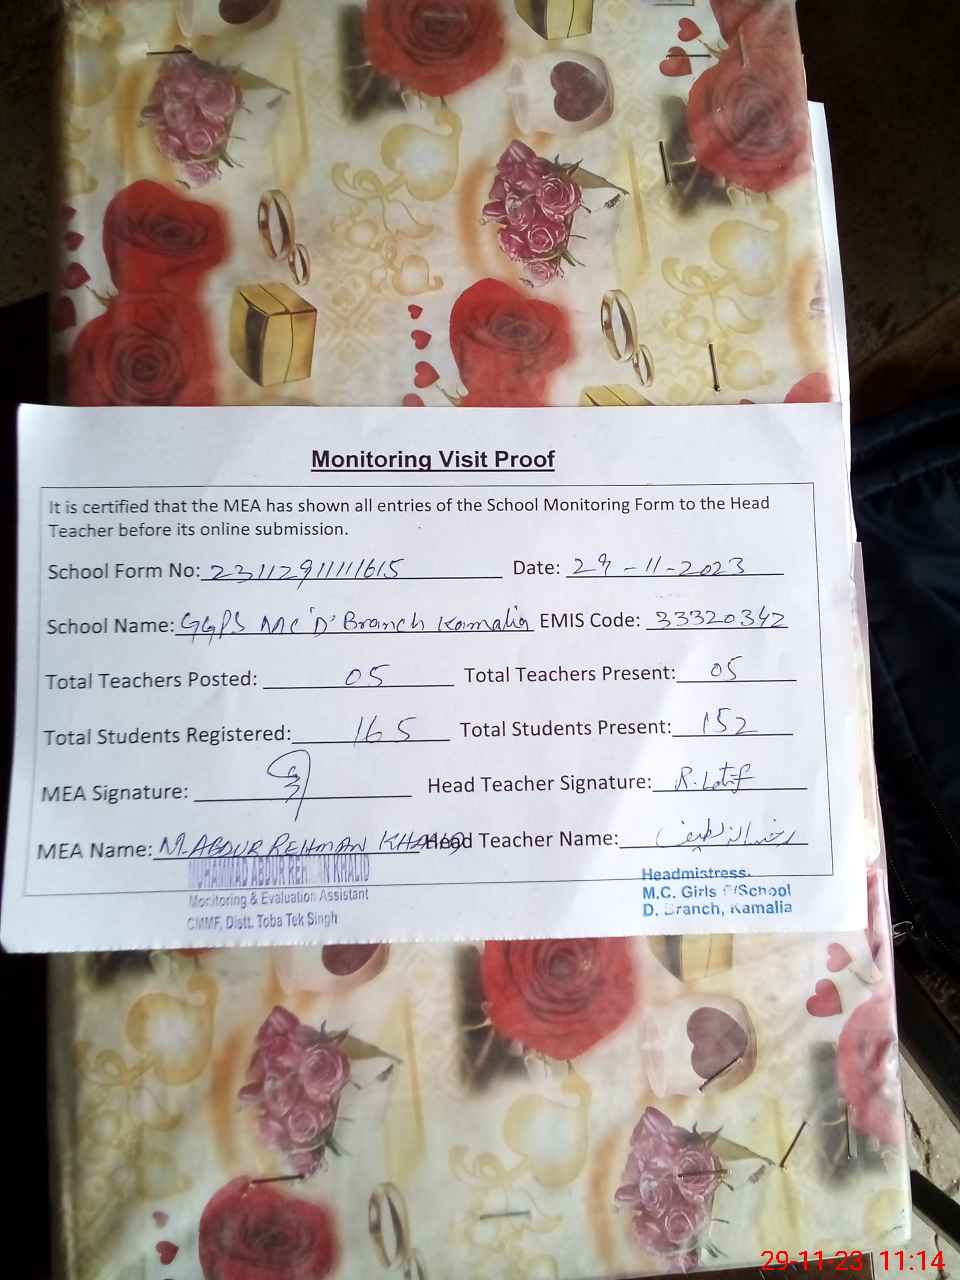 Monitoring Visit Proof
It is certified that the MEA has shown all entries of the School Monitoring Form to the Head
Teacher before its online submission.
School Form No: 231129111111615 Date: 29-11-2023
School Name: GGPS MC 'D' Branch Kamalia EMIS Code: 33320342
Total Teachers Posted: 05 Total Teachers Present: 05
Total Students Registered: 165 Total Students Present: 152
MEA Signature: Head Teacher Signature: R. Latif
MEA Name: M. ABDUR REHMAN KHALID Head Teacher Name: رخسانہ لطیف
MUHAMMAD ABDUR REHMAN KHALID
Monitoring & Evaluation Assistant
CMMF, Distt. Toba Tek Singh
Headmistress.
M.C. Girls P/School
D. Branch, Kamalia
29-11-23 11:14